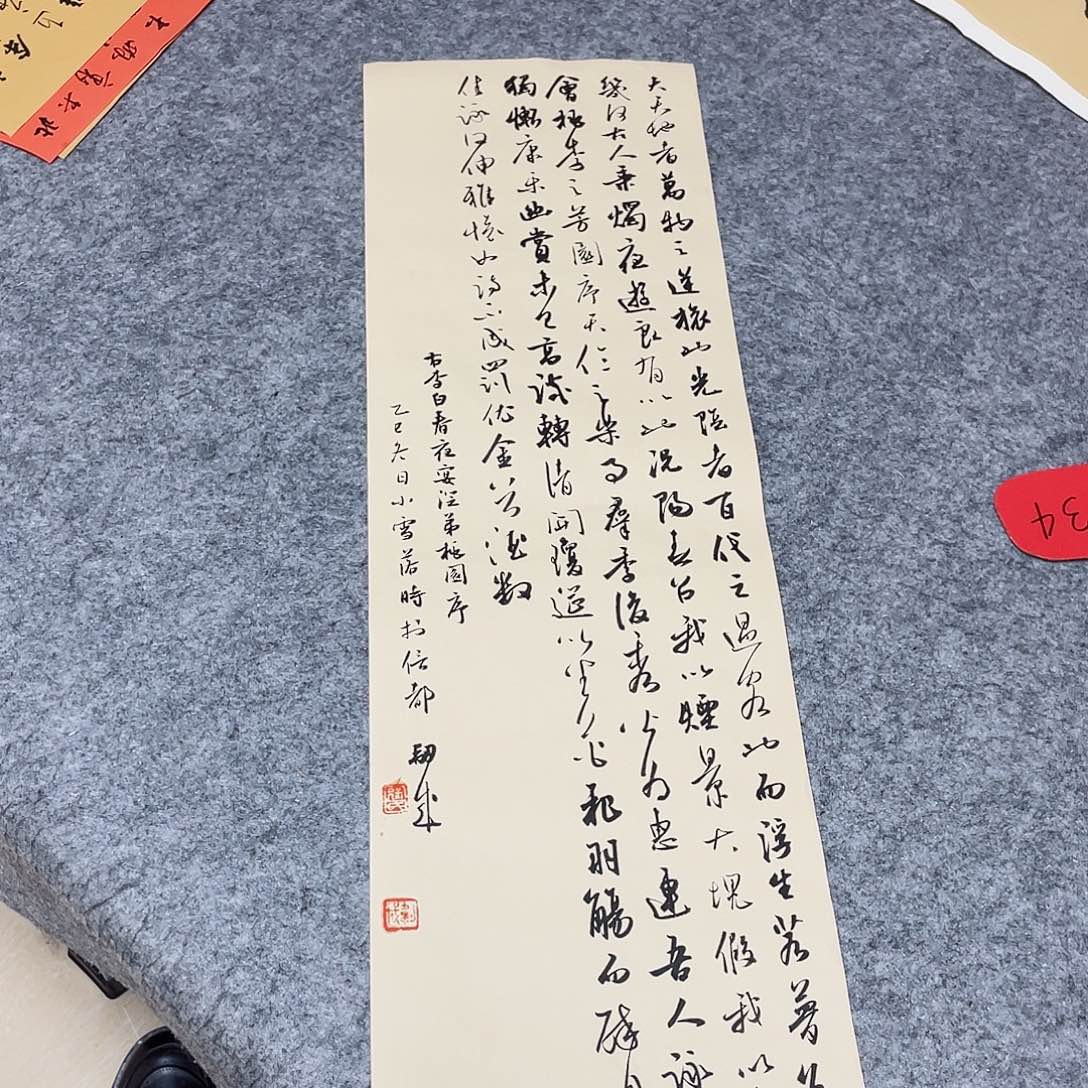 夫天地者萬物之逆旅也光陰者百代之過客也而浮生若夢為
幾何古人秉燭夜遊良有以也況陽春召我以煙景大塊假我以
會桃李之芳園序天倫之樂事群季俊秀以為惠連吾人詠
獨慚康樂幽賞未已高談轉清開瓊筵以坐花飛羽觴而醉月
佳詠何伸雅懷如詩不成罰依金谷酒數
右李白春夜宴從弟桃園序
乙巳冬日小雪落時於信都
34